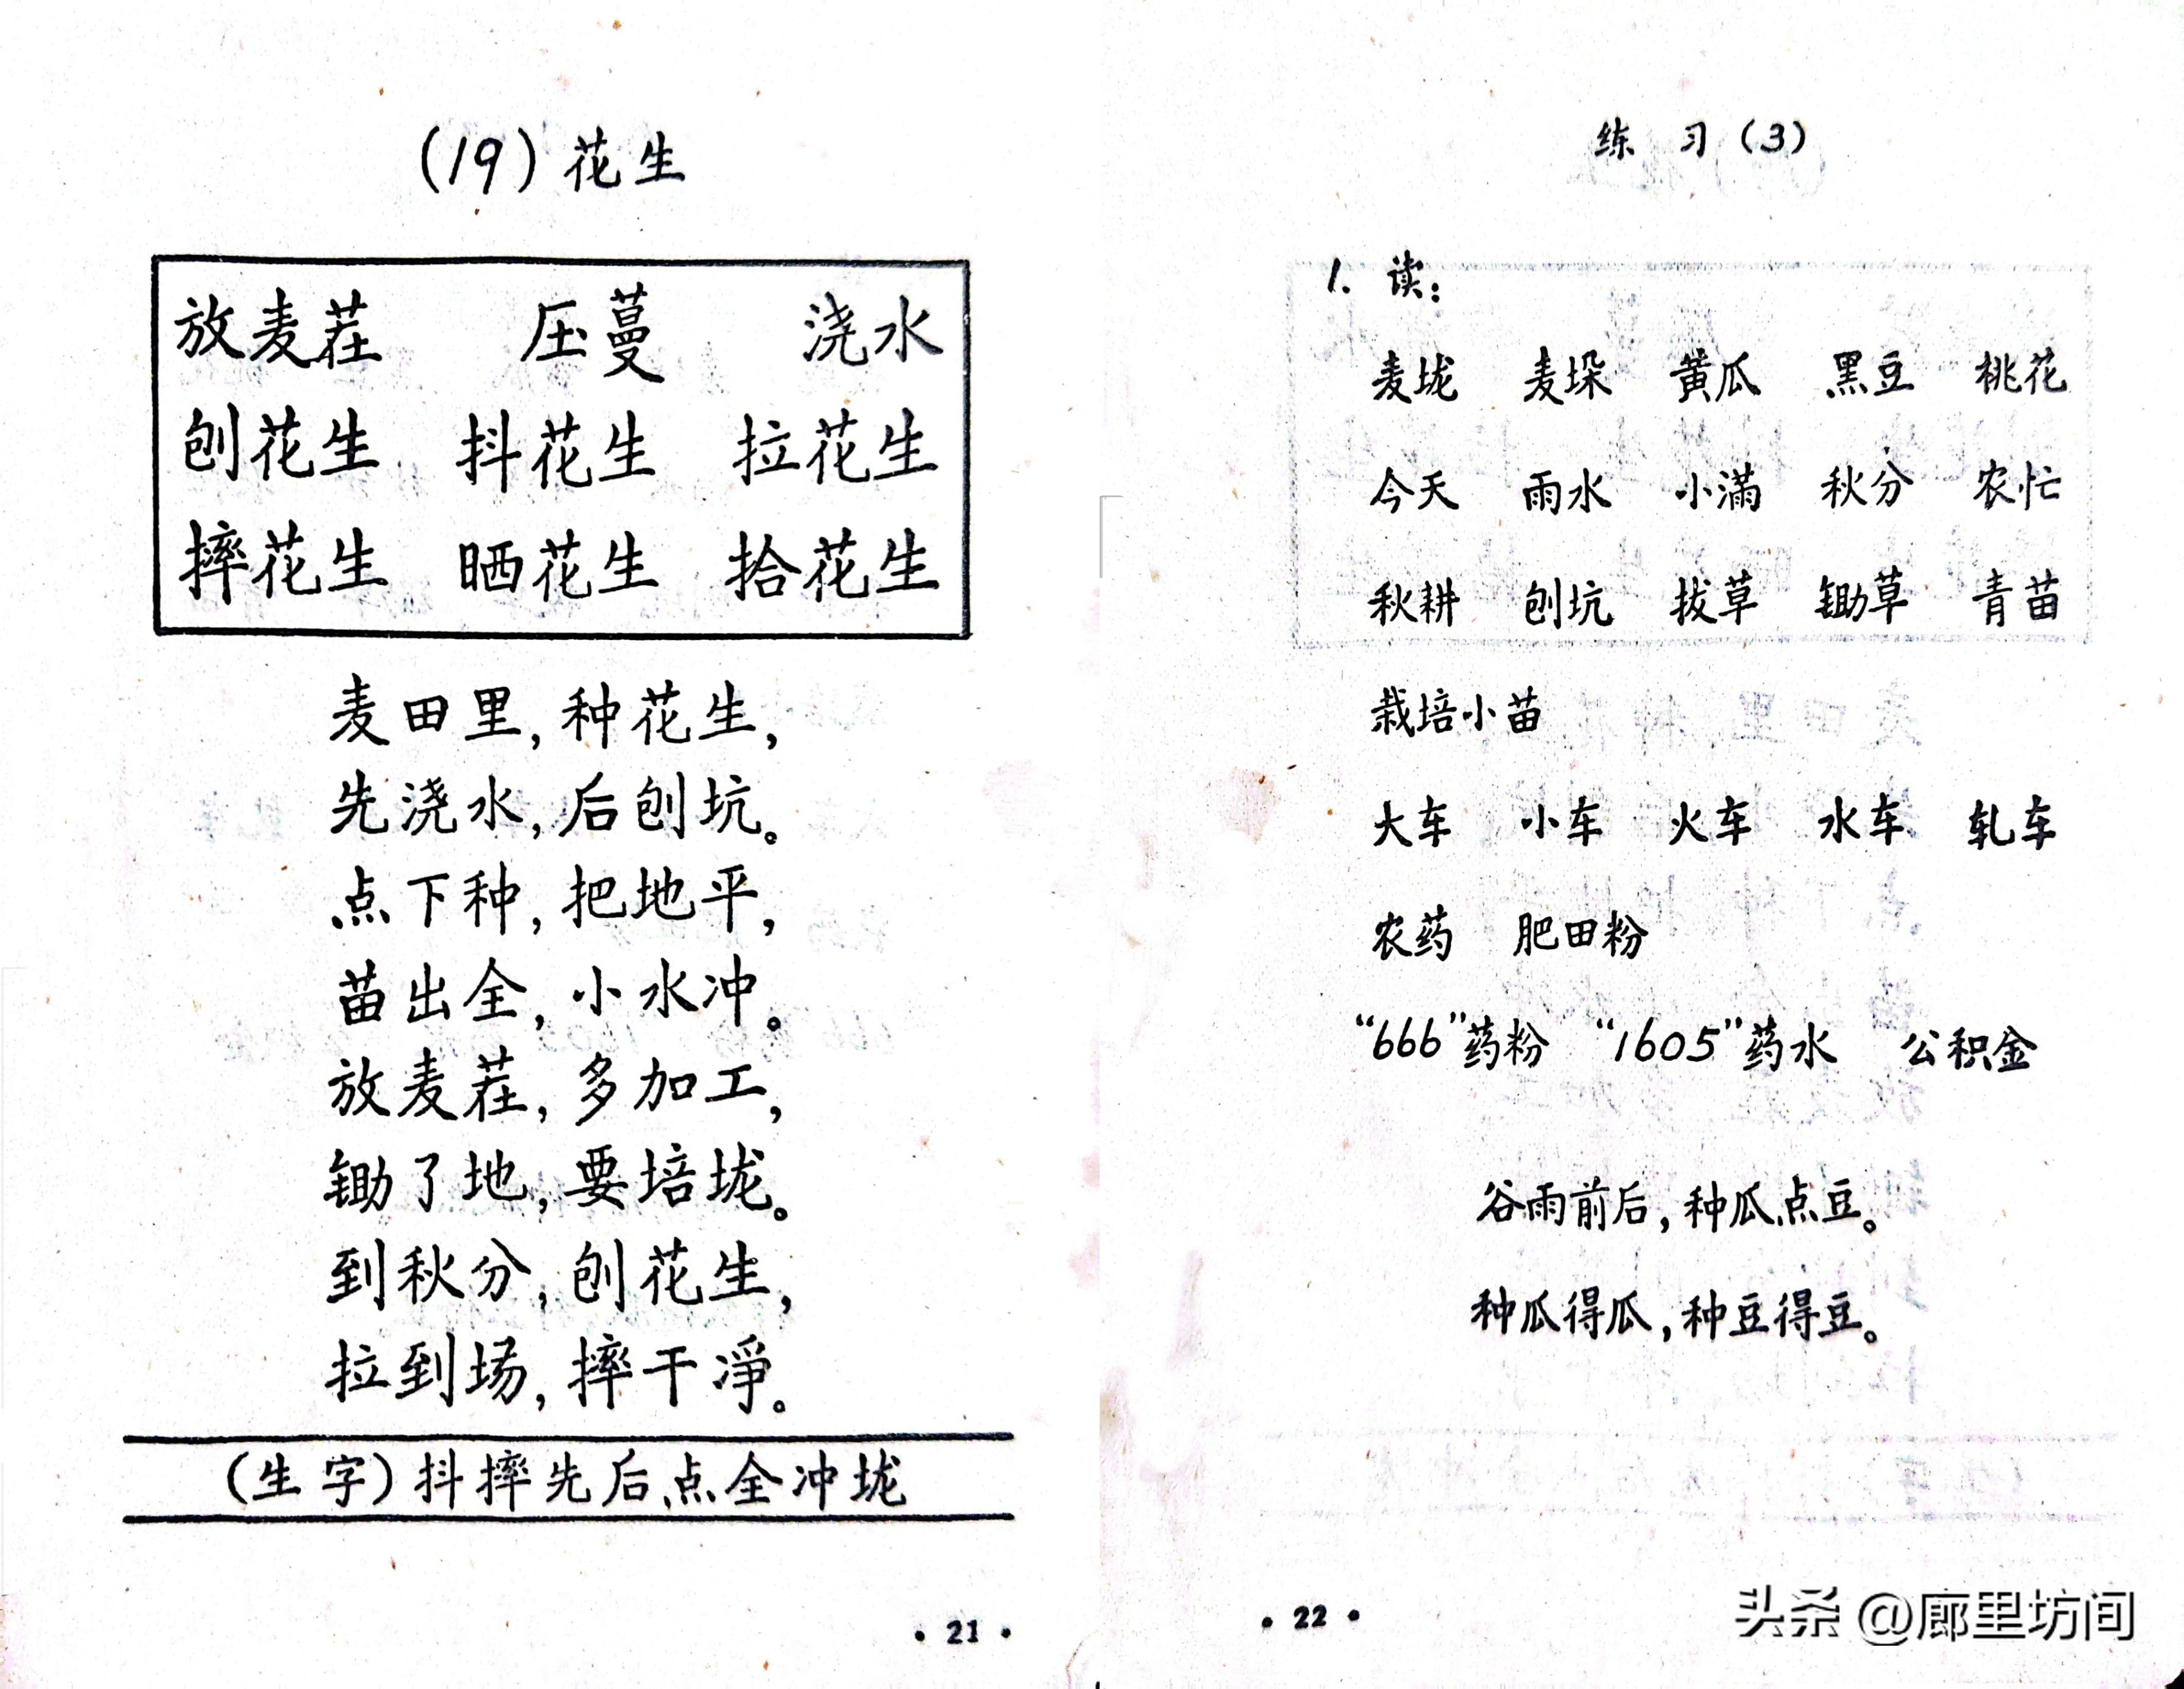 (19)花生
放麦茬 压蔓 浇水
刨花生 抖花生 拉花生
摔花生 晒花生 拾花生
麦田里,种花生,
先浇水,后刨坑。
点下种,把地平,
苗出全,小水冲。
放麦茬,多加工,
锄了地,要培垅。
到秋分,刨花生,
拉到场,摔干凈。
(生字)抖摔先后点全冲垅
·21·
练 习(3)
1. 读:
麦垅 麦垛 黄瓜 黑豆 桃花
今天 雨水 小满 秋分 农忙
秋耕 刨坑 拔草 锄草 青苗
栽培小苗
大车 小车 火车 水车 轧车
农药 肥田粉
“666”药粉 “1605”药水 公积金
谷雨前后,种瓜点豆。
种瓜得瓜,种豆得豆。
·22·
头条 @廊里坊间